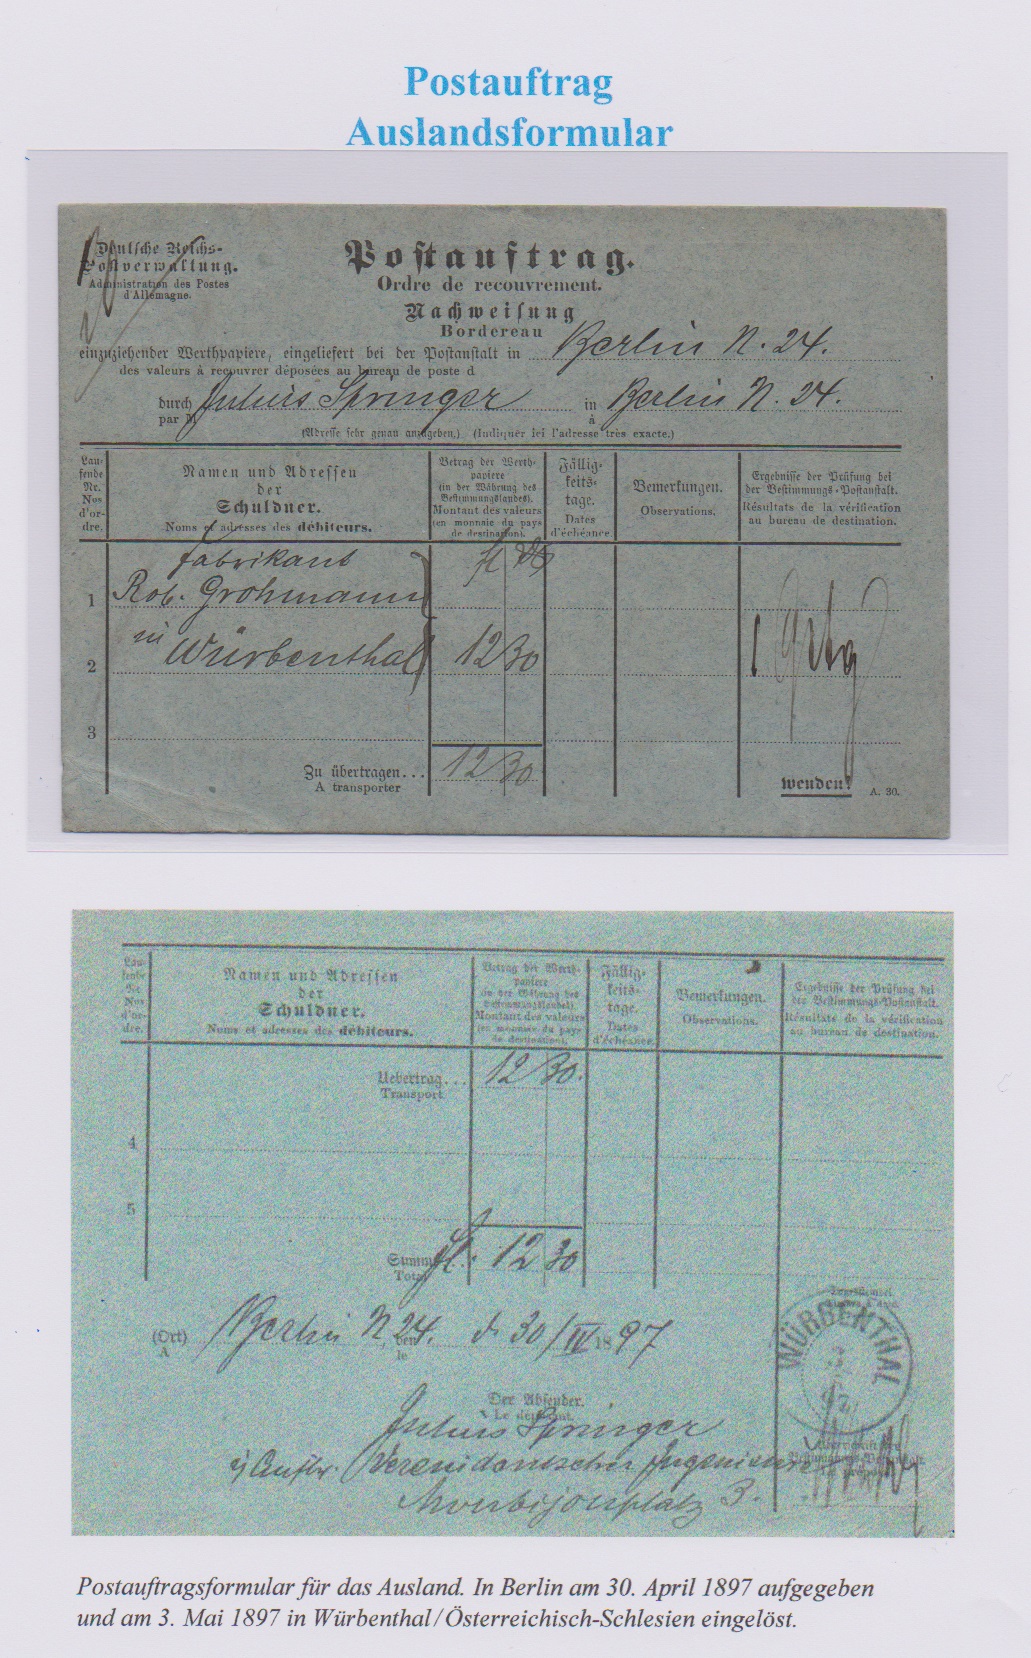 Postauftrag
Auslandsformular
Deutsche Reichs-
Postverwaltung.
Administration des Postes
d'Allemagne.
Postauftrag.
Ordre de recouvrement.
Nachweisung
Bordereau
einzuziehender Werthpapiere, eingeliefert bei der Postanstalt in Berlin N. 24.
des valeurs à recouvrer déposées au bureau de poste d
durch Julius Springer in Berlin N. 24.
par M à
(Adresse sehr genau anzugeben.) (Indiquer ici l'adresse très exacte.)
Lau-
fende
Nr.
Nos
d'or-
dre.
Namen und Adressen
der
Schuldner.
Noms et adresses des débiteurs.
Betrag der Werth-
papiere
(in der Währung des
Bestimmungslandes).
Montant des valeurs
(en monnaie du pays
de destination).
Fällig-
keits-
tage.
Dates
d'échéance.
Bemerkungen.
Observations.
Ergebnisse der Prüfung bei
der Bestimmungs-Postanstalt.
Résultats de la vérification
au bureau de destination.
Fabrikant fl
1 Rob. Grohmann
2 in Würbenthal 12 30
3
Zu übertragen... 12 30
A transporter
wenden!
A. 30.
Lau-
fende
Nr.
Nos
d'or-
dre.
Namen und Adressen
der
Schuldner.
Noms et adresses des débiteurs.
Betrag der Werth-
papiere
(in der Währung des
Bestimmungslandes).
Montant des valeurs
(en monnaie du pays
de destination).
Fällig-
keits-
tage.
Dates
d'échéance.
Bemerkungen.
Observations.
Ergebnisse der Prüfung bei
der Bestimmungs-Postanstalt.
Résultats de la vérification
au bureau de destination.
Uebertrag... 12 30.
Transport
4
5
Summe fl. 12 30
Total
(Ort) Berlin N 24. den d. 30/IV 1897
A le
WÜRBENTHAL
Der Absender.
Le déposant.
Julius Springer
Verein deutscher Ingenieure
Monbijouplatz 3.
Postauftragsformular für das Ausland. In Berlin am 30. April 1897 aufgegeben
und am 3. Mai 1897 in Würbenthal/Österreichisch-Schlesien eingelöst.